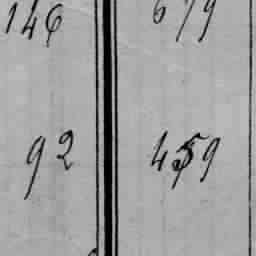 146 679
92 459